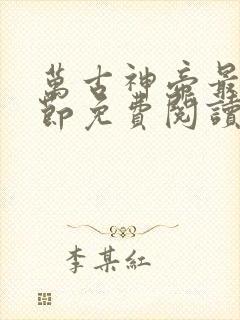 萬古神帝最
節免費閱讀
李某紅